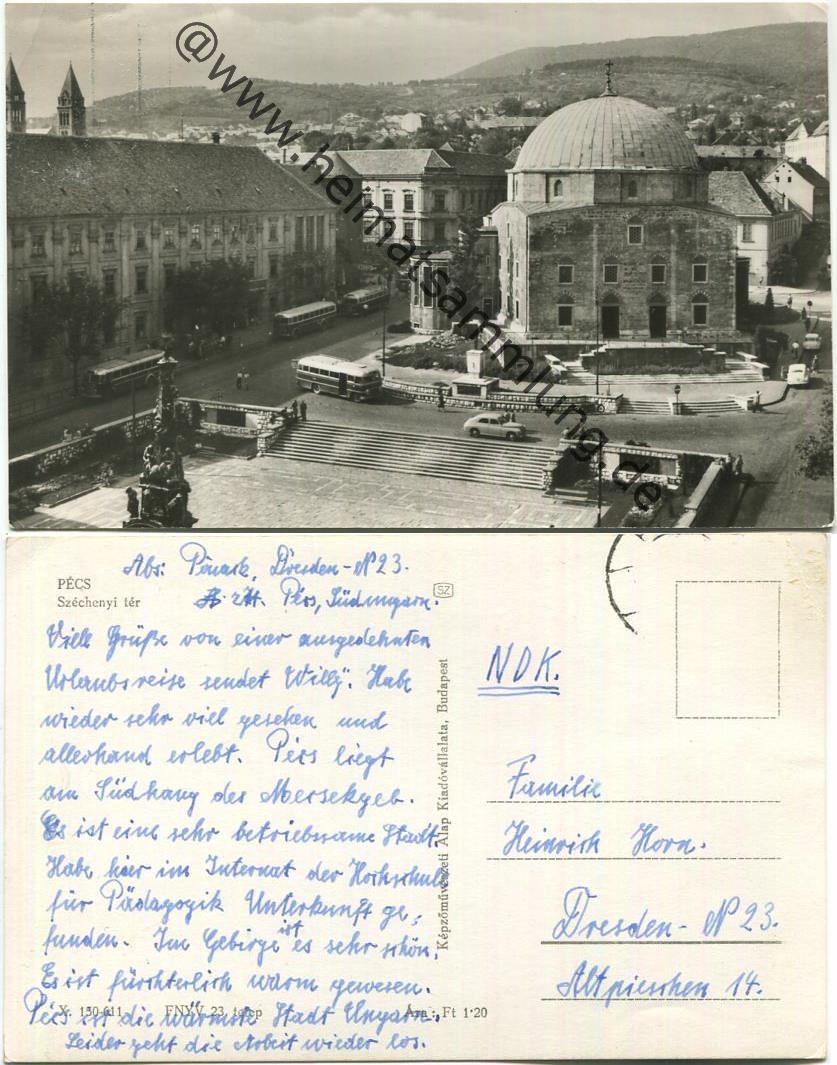 @www.heimatsammlung.de
PÉCS
Széchenyi tér
Abs: Pönack, Dresden-N 23.
z.Zt. Pécs, Südungarn.
SZ
Viele Grüße von einer ausgedehnten
Urlaubsreise sendet Willy. Habe
wieder sehr viel gesehen und
allerhand erlebt. Pécs liegt
am Südhang des Mersekgeb.
Es ist eine sehr betriebsame Stadt.
Habe hier im Internat der Hochschule
für Pädagogik Unterkunft ge,
funden. Im Gebirge ist es sehr schön,
Es ist fürchterlich warm gewesen.
Pécs ist die wärmste Stadt Ungarn.
Leider geht die Arbeit wieder los.
X. 150-611 FNYV 23. telep Ára: Ft 1·20
Képzőművészeti Alap Kiadóvállalata, Budapest
NDK.
Familie
Heinrich Horn.
Dresden- N 23.
Altpieschen 14.